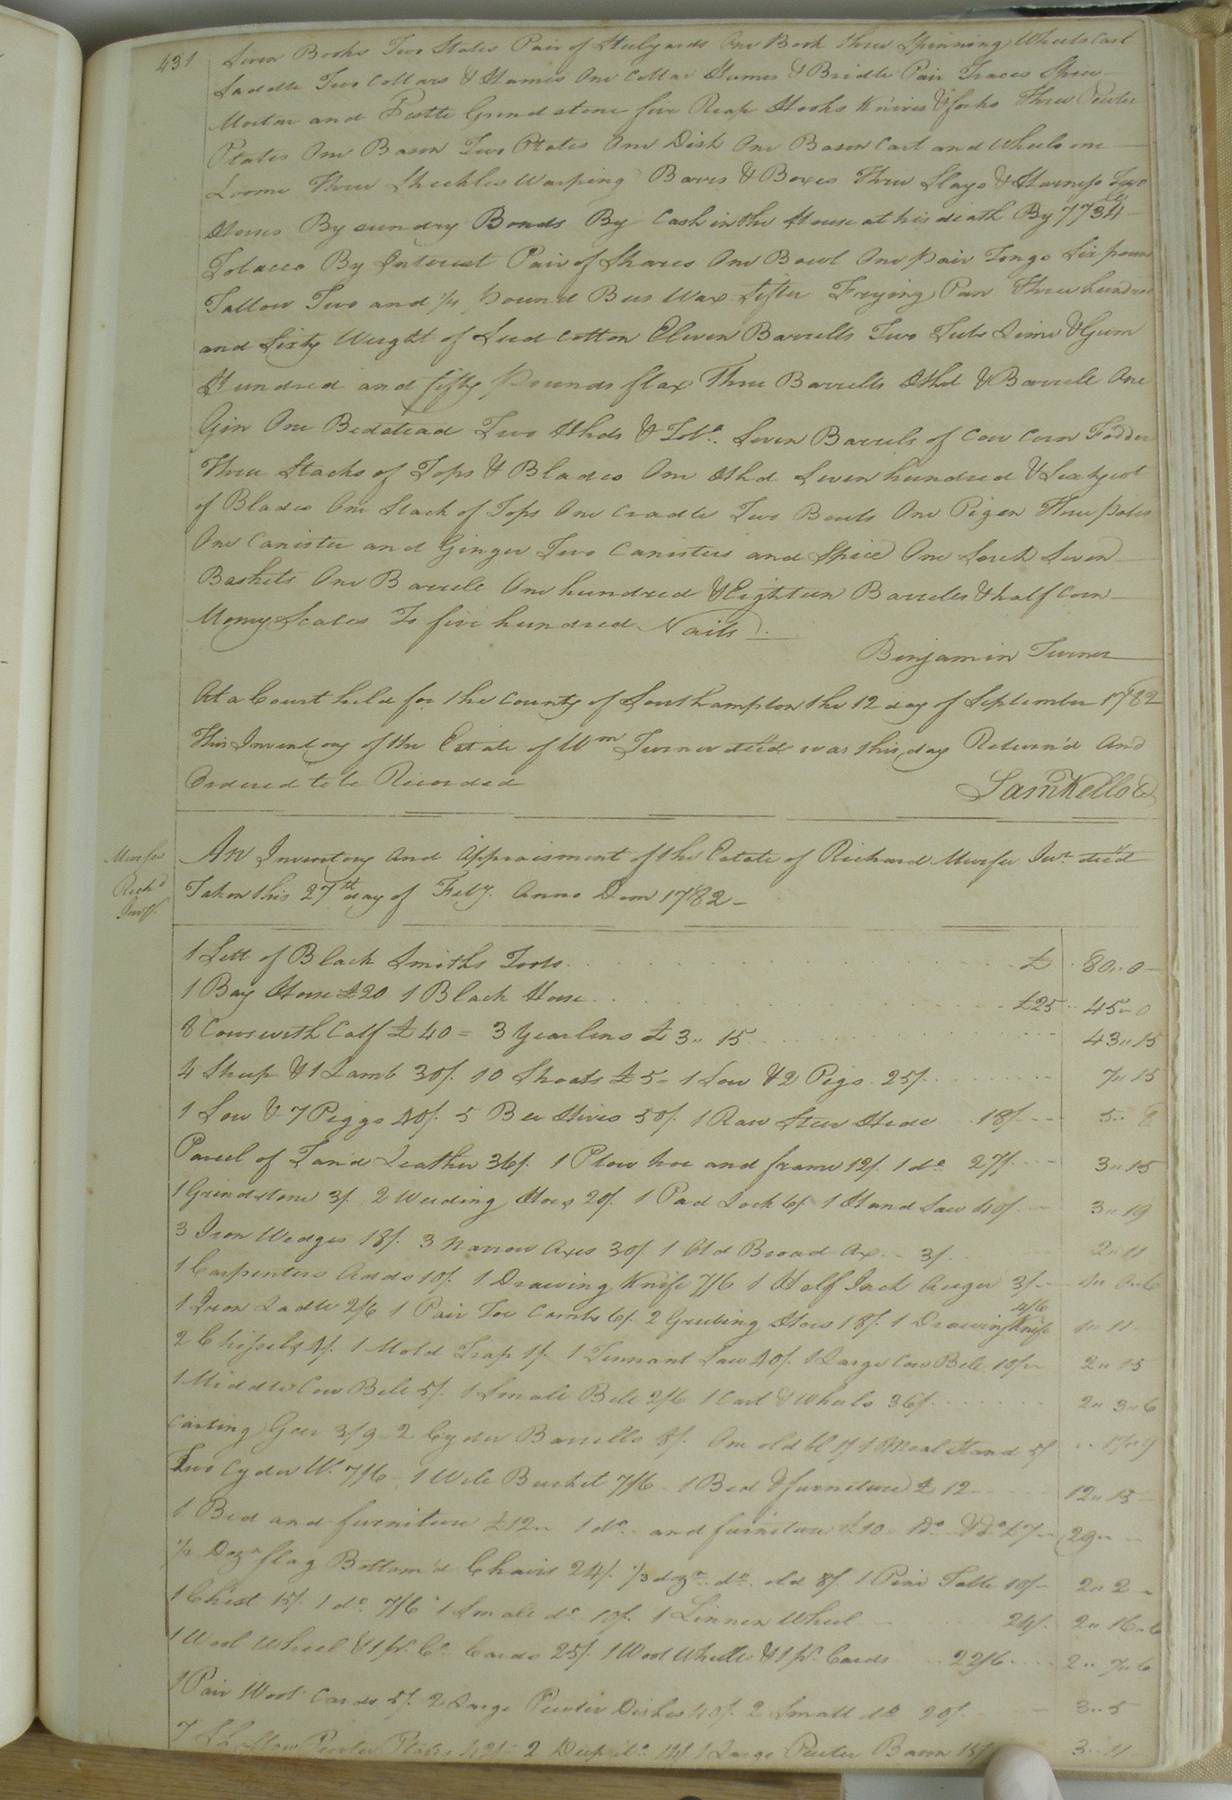 431
Seven Books Two Slates Pair of Stulyards One Book three Spinning Wheels Cart
Saddle Two Collars & Hames One Collar Hames & Bridle Pair Traces Spice
Mortar and Pestle Grindstone five Reap Hooks Knives & forks Three Pewter
Plates One Bason Two Plates One Dish One Bason Cart and Wheels one
Loome Three Shickles Warping Barrs & Boxes Three Slays & Harness Two
Horses By sundry Bonds By Cash in the House at his death By 7734 lb
Tobacco By Interest Pair of Shares One Bowl One pair Tongs Six pound
Tallow Two and 1/4 pound Bees Wax Sifter Frying Pan Three hundred
and Sixty Weight of Seed Cotton Eleven Barrells Two Tubs Lime & Gum
Hundred and fifty Pounds flax Three Barrells Hhd & Barrele One
Gin One Bedstead Two Hhds & Tobo. Seven Barrels of Cow Corn Fodder
Three Stacks of Tops & Blades One Hhd Seven hundred & Sixty wt
of Blades One Stack of Tops One Cradle Two Bowls One Pigen Three pales
One Canister and Ginger Two Canisters and Spice One Seven
Baskets One Barrele One hundred & Eighteen Barreles & half Corn
Money Scales To five hundred Nails
Benjamin Turner
At a Court held for the County of Southampton the 12 day of September 1782
This Inventory of the Estate of Wm Turner decd was this day Return'd And
Ordered to be Recorded
Saml Kello
Murfee
Richd
Invty
An Inventory and Appraisment of the Estate of Richard Murfee Junr decd
Taken this 27th day of Feby. Anno Dom 1782
1 Sett of Black Smiths Tools £ 80..0
1 Bay Horse £20 1 Black Horse £25 45..0
8 Cows with Calf £40 = 3 Yearlins £3..15 43..15
4 Sheep & 1 Lamb 30/. 10 Shoats £5 = 1 Sow & 2 Pigs 25/. 7..15
1 Sow & 7 Piggs 40/. 5 Bee Hives 50/. 1 Raw Steer Hide 18/. 5..8
Parcel of Tand Leather 36/. 1 Plow hoe and frame 12/. 1 do 27/. 3..15
1 Grindstone 3/. 2 Weeding Hoes 20/. 1 Pad Lock 6/. 1 Hand Saw 40/. 3..19
3 Iron Wedges 18/. 3 Narrow Axes 30/. 1 Old Broad Ax 3/. 2..11
1 Carpenters Adds 10/. 1 Drawing Knife 7/6 1 Half Inch Auger 3/. 1..0..6
1 Iron Ladle 2/6 1 Pair Combs 6/. 2 Grubing Hoes 18/. 1 Drawing Knife 4/6 1..11
2 Chissels 4/. 1 Mold Trap 1/. 1 Tennant Saw 40/. 1 Large Cow Bell 10/. 2..15
1 Middle Cow Bell 5/. 1 Small Bell 2/6 1 Cart & Wheels 36/. 2..3..6
Carting Geer 3/9 2 Cyder Barrells 8/. One old bl 1/ 1 Meal Stand 5/ ..17..9
Two Cyder 7/6 1 Well Bucket 7/6 1 Bed & furniture £12 12..15
1 Bed and furniture £12 1 do. and furniture £10 Do & Do £7 29..
1/2 Dozn flag Bottom'd Chairs 24/. 1/3 dozn. do. old 8/. 1 Pine Table 10/. 2..2
1 Chest 15/. 1 do. 7/6 1 Small do. 10/. 1 Linnen Wheel 24/. 2..16..6
1 Wool Wheel & 1 pr. Co. Cards 25/. 1 Wool Wheele & 1 pr. Cards 22/6 2..7..6
1 Pair Wool Cards 5/. 2 Large Pewter Dishes 40/. 2 Small do 20/. 3..5
7 Shallow Pewter Plates 42/. 2 Deep do. 14/. 1 Large Pewter Bason 15/ 3..11